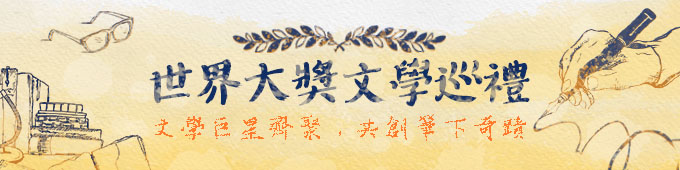 世界大獎文學巡禮
文學巨星齊聚，共創筆下奇蹟